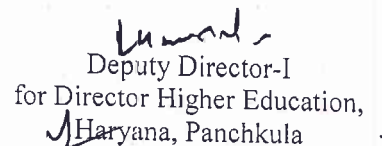 Deputy Director-I
for Director Higher Education,
Haryana, Panchkula